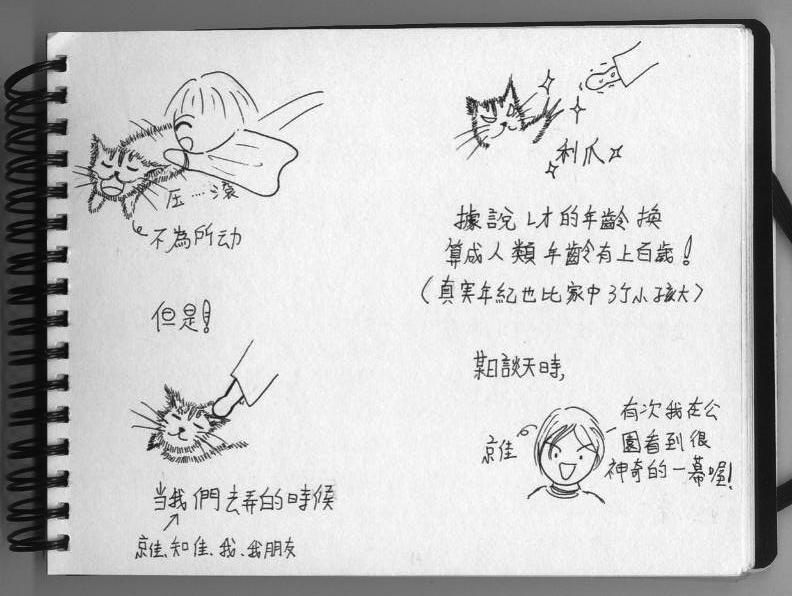 压…滾
不為所动
但是!
当我們去弄它的時候
京佳、知佳、我、我朋友
利爪
據說 的年齡換
算成人類年齡有上百歲!
(真実年紀也比家中 小孩大)
某日談天時,
京佳
有次我在公
園看到很
神奇的一幕喔!